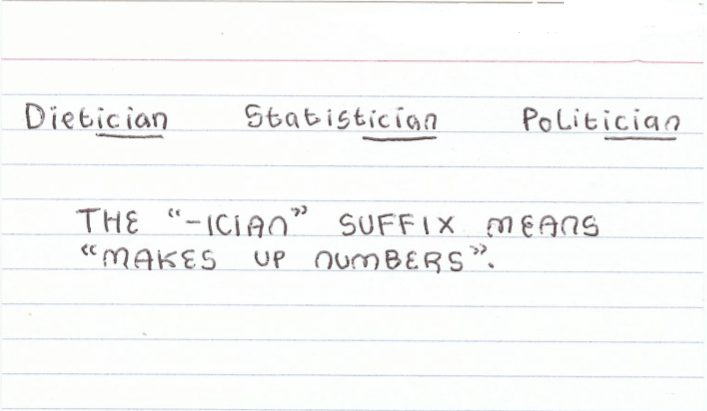 Dietician Statistician Politician
THE “-ICIAN” SUFFIX MEANS
“MAKES UP NUMBERS”.